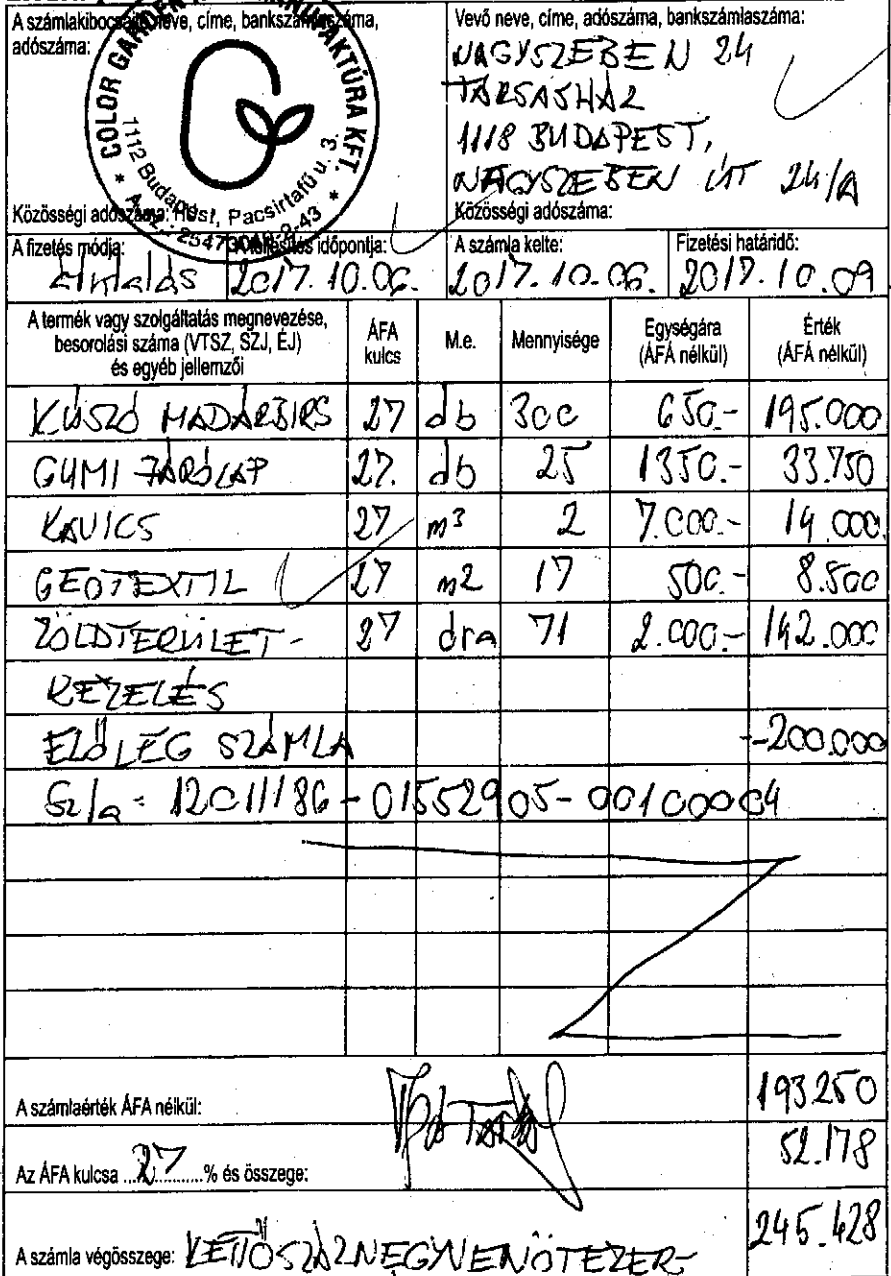 A számlakibocsátó neve, címe, bankszámlaszáma,
adószáma:
COLOR GARDEN MANUFAKTÚRA KFT.
1112 Budapest, Pacsirtafű u. 3.
Közösségi adószáma: HU
Vevő neve, címe, adószáma, bankszámlaszáma:
NAGYSZEBEN 24
TÁRSASHÁZ
1118 BUDAPEST,
NAGYSZEBEN ÚT 24/A
Közösségi adószáma:
A fizetés módja: A teljesítés időpontja: A számla kelte: Fizetési határidő:
átutalás 2017.10.06. 2017.10.06. 2017.10.09.
A termék vagy szolgáltatás megnevezése, besorolási száma (VTSZ, SZJ, ÉJ) és egyéb jellemzői ÁFA kulcs M.e. Mennyisége Egységára (ÁFA nélkül) Érték (ÁFA nélkül)
KÚSZÓ MADÁRBIRS 27 db 300 650.- 195.000
GUMI JÁRÓLAP 27. db 25 1350.- 33.750
KAVICS 27 m3 2 7.000.- 14.000.
GEOTEXTIL 27 m2 17 500.- 8.500
ZÖLDTERÜLET- 27 óra 71 2.000.- 142.000
KEZELÉS
ELŐLEG SZÁMLA -200.000
Sz/a: 12011186-01552905-00100004
A számlaérték ÁFA nélkül: 193250
Az ÁFA kulcsa 27 % és összege: 52.178
A számla végösszege: KETTŐSZÁZNEGYVENÖTEZER- 245.428